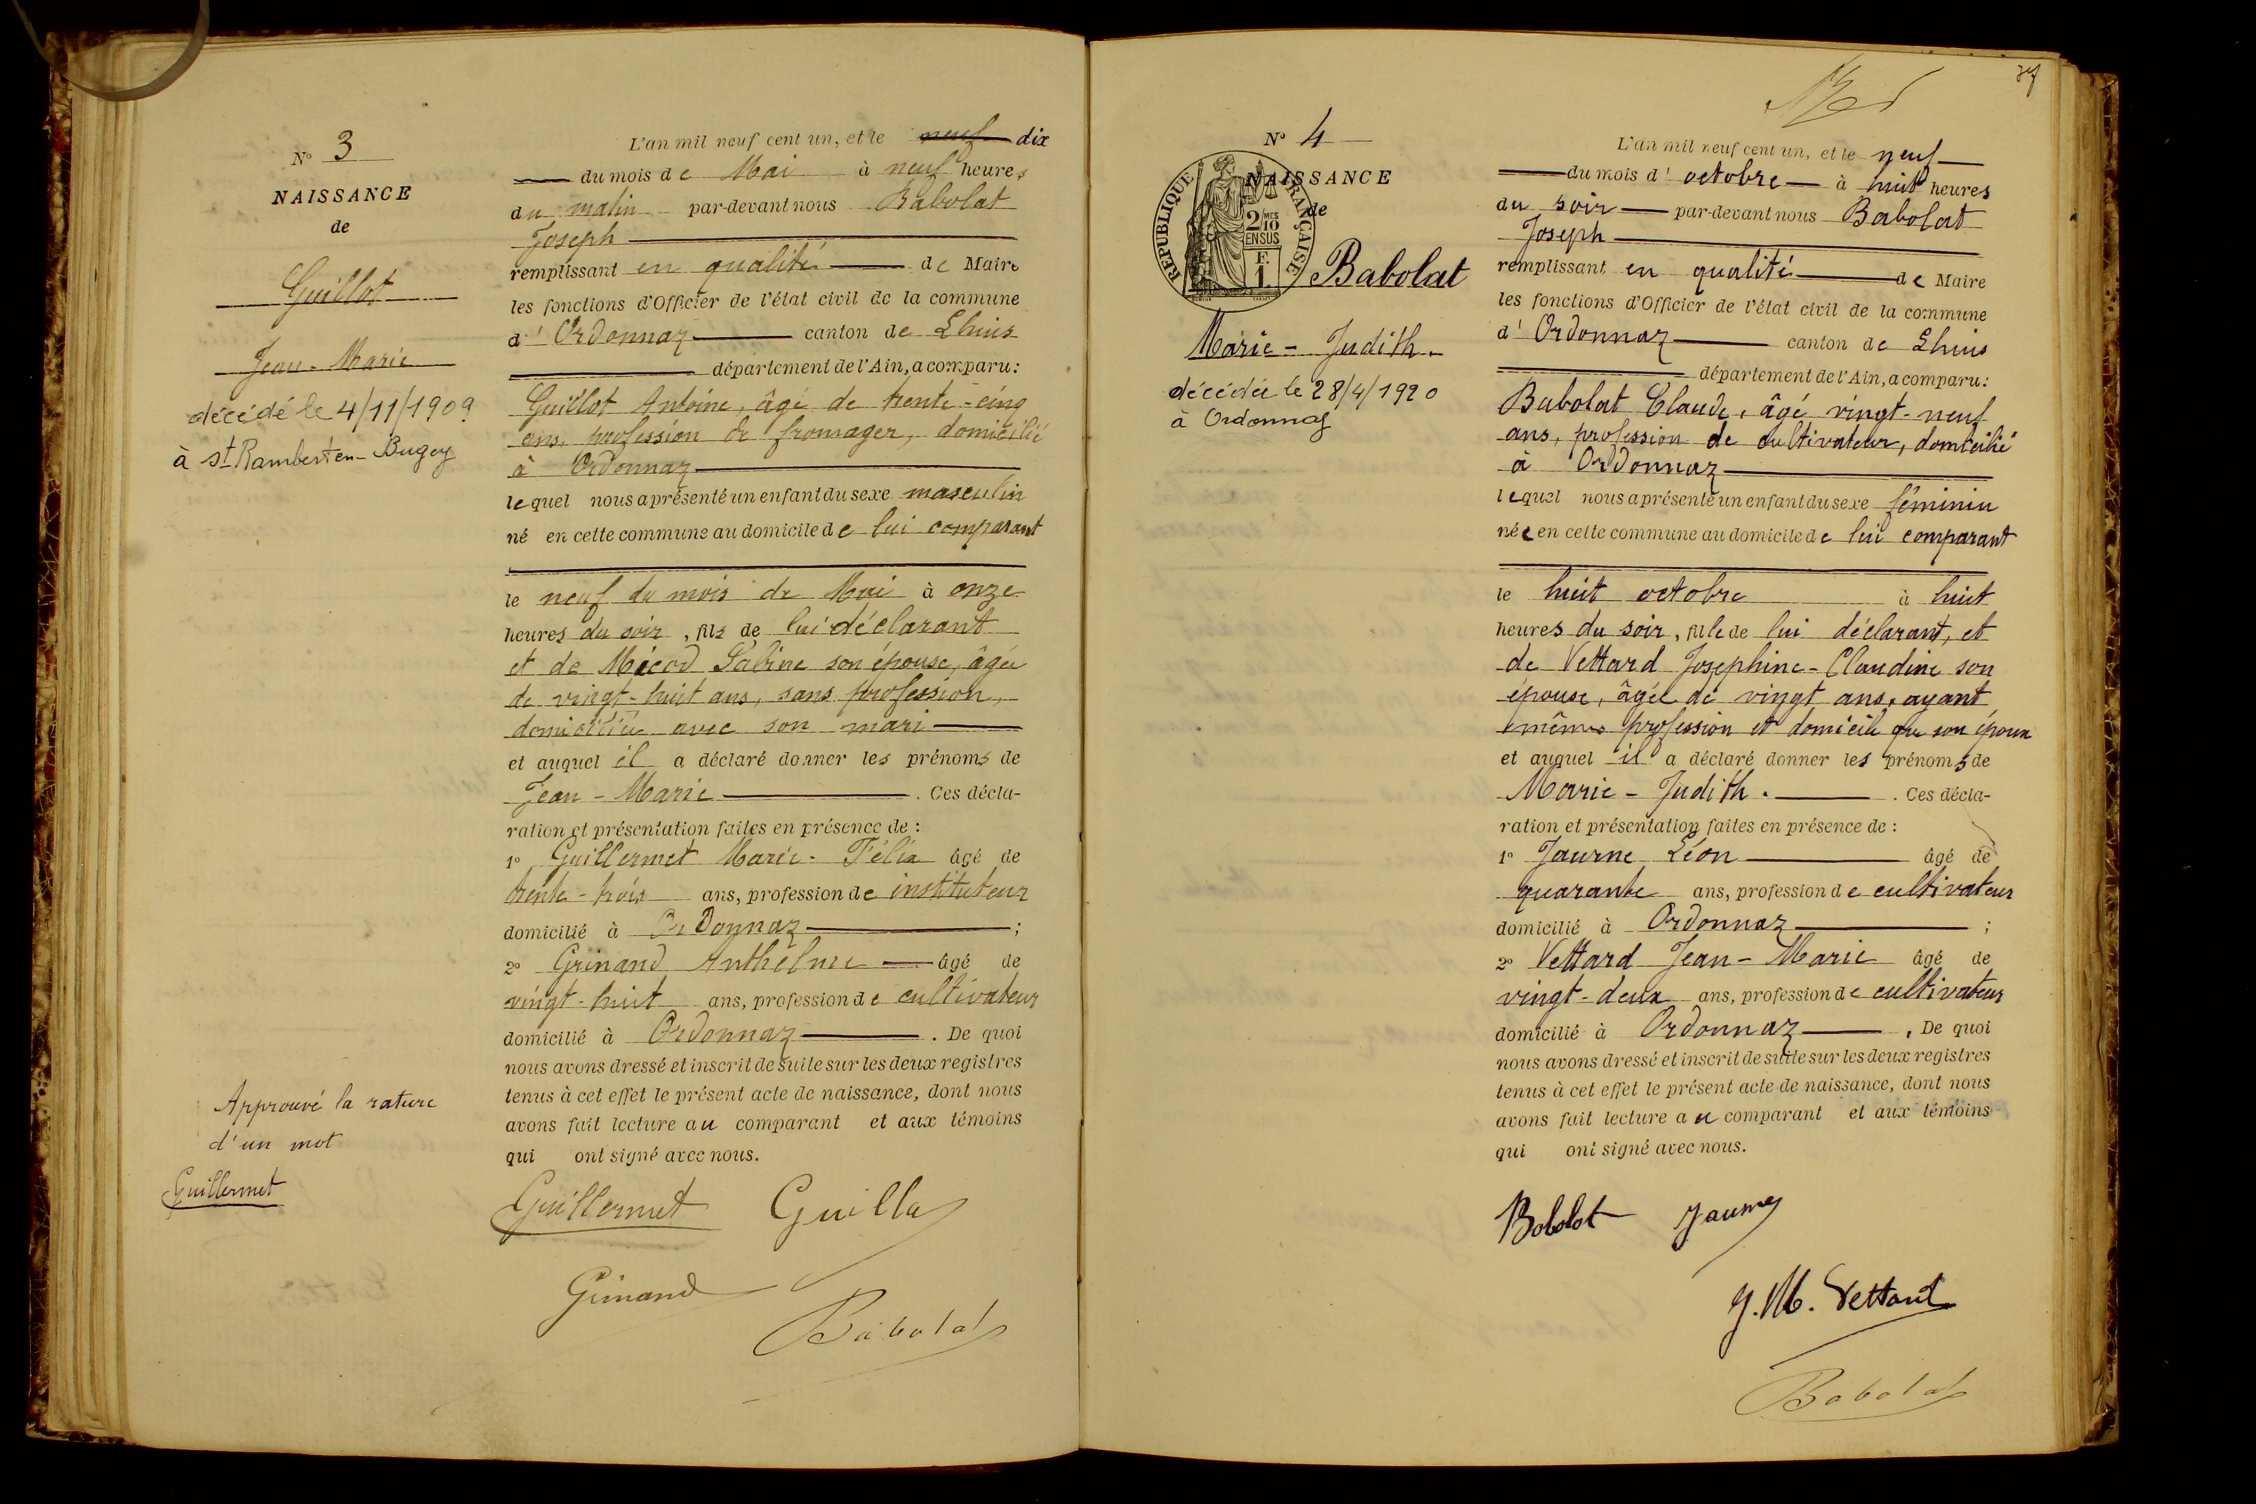 N° 3
NAISSANCE
de
Guillot
Jean-Marie
décédé le 4/11/1909
à st Rambert-en-Bugey
Approuvé la rature
d'un mot
Guillermet
L'an mil neuf cent un, et le neuf dix
du mois de Mai à neuf heures
du matin par-devant nous Babolat
Joseph
remplissant en qualité de Maire
les fonctions d'Officier de l'état civil de la commune
d'Ordonnaz canton de Lhuis
département de l'Ain, a comparu:
Guillot Antoine, âgé de trente-cinq
ans, profession de fromager, domicilié
à Ordonnaz
lequel nous a présenté un enfant du sexe masculin
né en cette commune au domicile de lui comparant
le neuf du mois de Mai à onze
heures du soir, fils de lui déclarant
et de Micod Sabine son épouse, âgée
de vingt-huit ans, sans profession,
domiciliée avec son mari
et auquel il a déclaré donner les prénoms de
Jean-Marie. Ces décla-
ration et présentation faites en présence de:
1° Guillermet Marie-Félix âgé de
trente-trois ans, profession de instituteur
domicilié à Ordonnaz;
2° Grinand Anthelme âgé de
vingt-huit ans, profession de cultivateur
domicilié à Ordonnaz. De quoi
nous avons dressé et inscrit de suite sur les deux registres
tenus à cet effet le présent acte de naissance, dont nous
avons fait lecture au comparant et aux témoins
qui ont signé avec nous.
Guillermet Guillot
Grinand
Babolat
N° 4
NAISSANCE
de
RÉPUBLIQUE FRANÇAISE
2/10 MES
EN SUS
F.
1.
Babolat
Marie-Judith.
décédée le 28/4/1920
à Ordonnaz
L'an mil neuf cent un, et le neuf
du mois d'octobre à huit heures
du soir par-devant nous Babolat
Joseph
remplissant en qualité de Maire
les fonctions d'Officier de l'état civil de la commune
d'Ordonnaz canton de Lhuis
département de l'Ain, a comparu:
Babolat Claude, âgé vingt-neuf
ans, profession de cultivateur, domicilié
à Ordonnaz
lequel nous a présenté un enfant du sexe féminin
née en cette commune au domicile de lui comparant
le huit octobre à huit
heures du soir, fille de lui déclarant, et
de Vettard Josephine-Claudine son
épouse, âgée de vingt ans, ayant
mêmes profession et domicile que son époux
et auquel il a déclaré donner les prénoms de
Marie-Judith. Ces décla-
ration et présentation faites en présence de:
1° Jaurne Léon âgé de
quarante ans, profession de cultivateur
domicilié à Ordonnaz;
2° Vettard Jean-Marie âgé de
vingt-deux ans, profession de cultivateur
domicilié à Ordonnaz. De quoi
nous avons dressé et inscrit de suite sur les deux registres
tenus à cet effet le présent acte de naissance, dont nous
avons fait lecture au comparant et aux témoins
qui ont signé avec nous.
Babolat Jaume
J. M. Vettard
Babolat